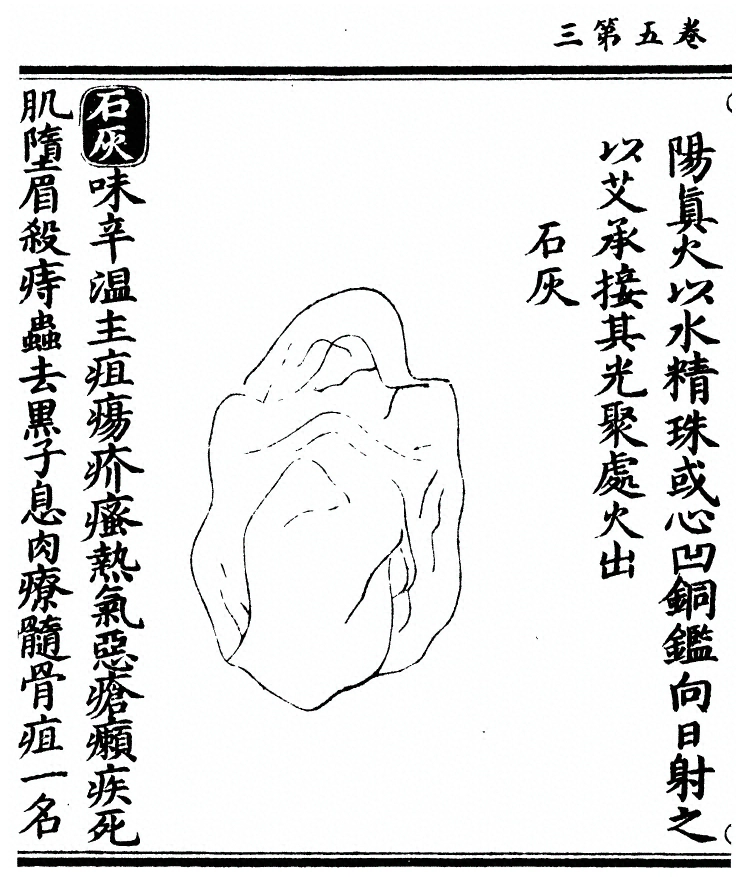 三第五卷
陽真火以水精珠或心凹銅鑑向日射之
以艾承接其光聚處火出
石灰
石灰味辛溫主疽瘍疥瘙熱氣惡瘡癩疾死
肌墮眉殺痔蟲去黑子息肉療髓骨疽一名